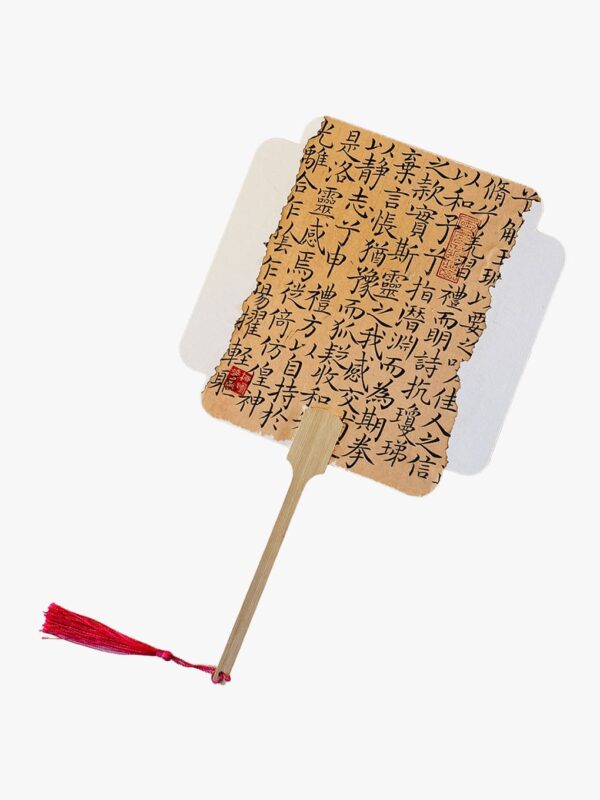 兮解玉珮以要之佳人之信
脩羌習禮而明詩抗瓊珶
以和予兮指潛淵而為期拳
之款實斯靈之我感交
棄言悵猶豫而狐疑收和
以靜志兮申禮方以自持於
是洛靈感焉從倚仿偟神
光離合乍陰乍陽擢輕軀